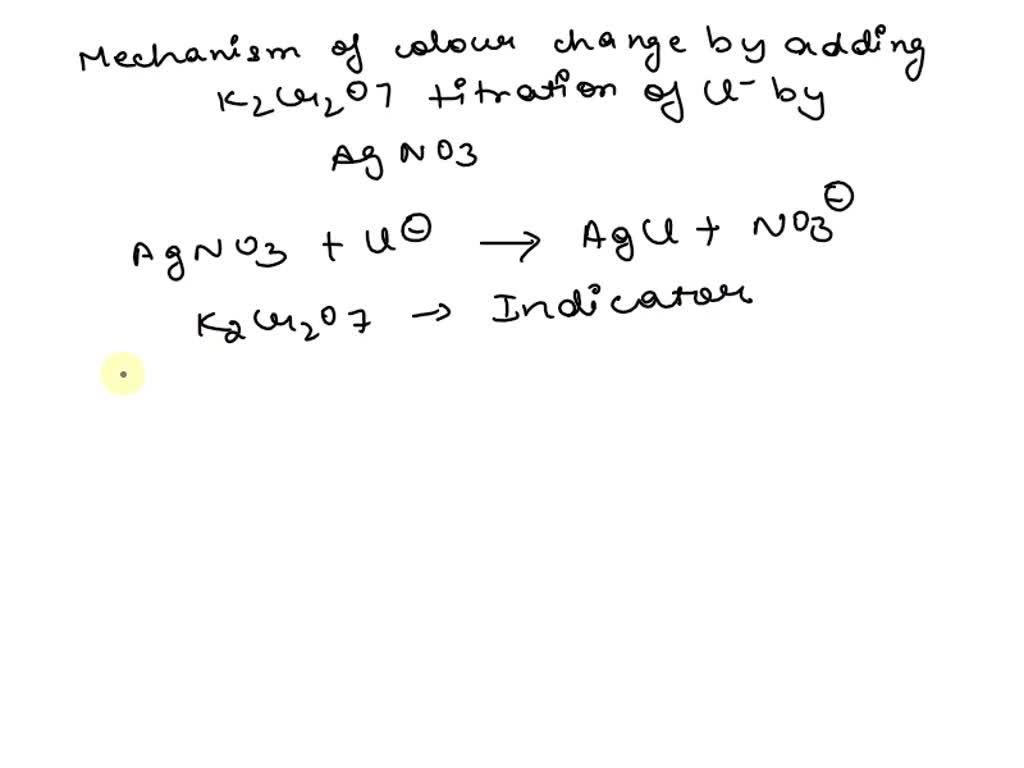 Mechanism of colour change by adding
K2Cr2O7 titration of Cl- by
AgNO3
AgNO3 + Cl⊖ → AgCl + NO3⊖
K2Cr2O7 → Indicator